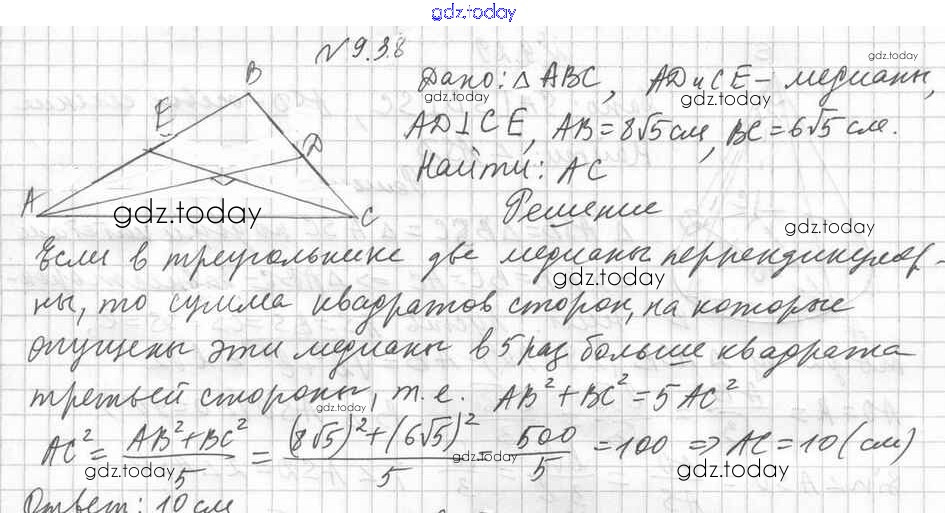 gdz.today
№ 9.38
B
E
D
A
C
Дано: △ABC, AD и CE – медианы,
AD⊥CE, AB=8√5 см, BC=6√5 см.
Найти: AC
Решение
Если в треугольнике две медианы перпендикуляр-
ны, то сумма квадратов сторон, на которые
опущены эти медианы в 5 раз больше квадрата
третьей стороны, т.е. AB²+BC²=5AC²
AC² = (AB²+BC²)/5 = ((8√5)²+(6√5)²)/5 = 500/5 = 100 ⇒ AC=10 (см)
Ответ: 10 см
gdz.today
gdz.today
gdz.today
gdz.today
gdz.today
gdz.today
gdz.today
gdz.today
gdz.today
gdz.today